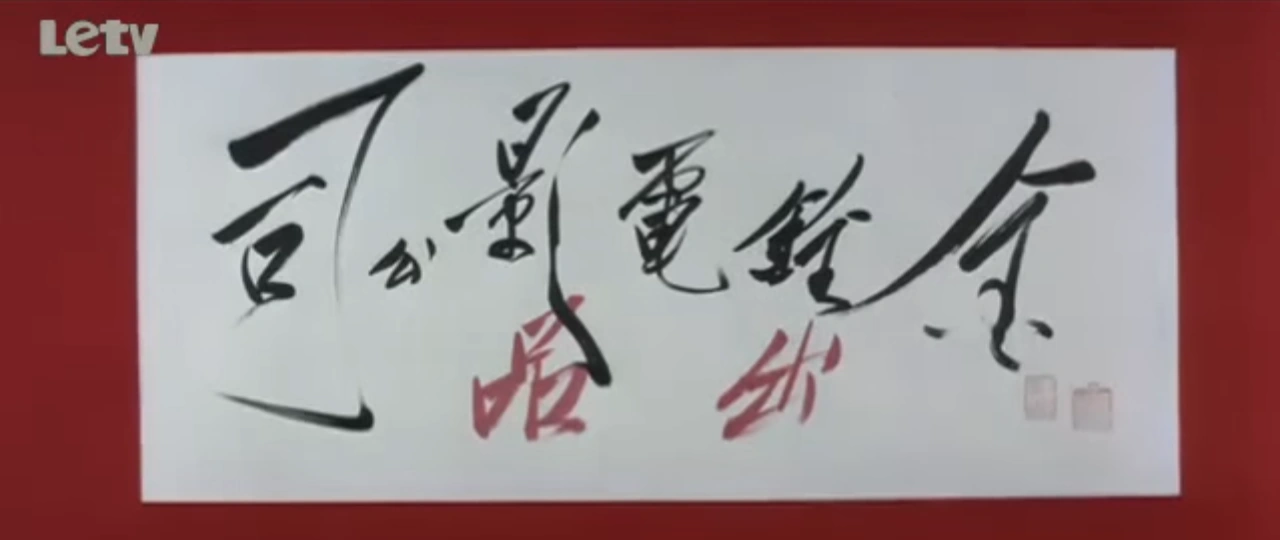 Letv
金銓電影公司
出品